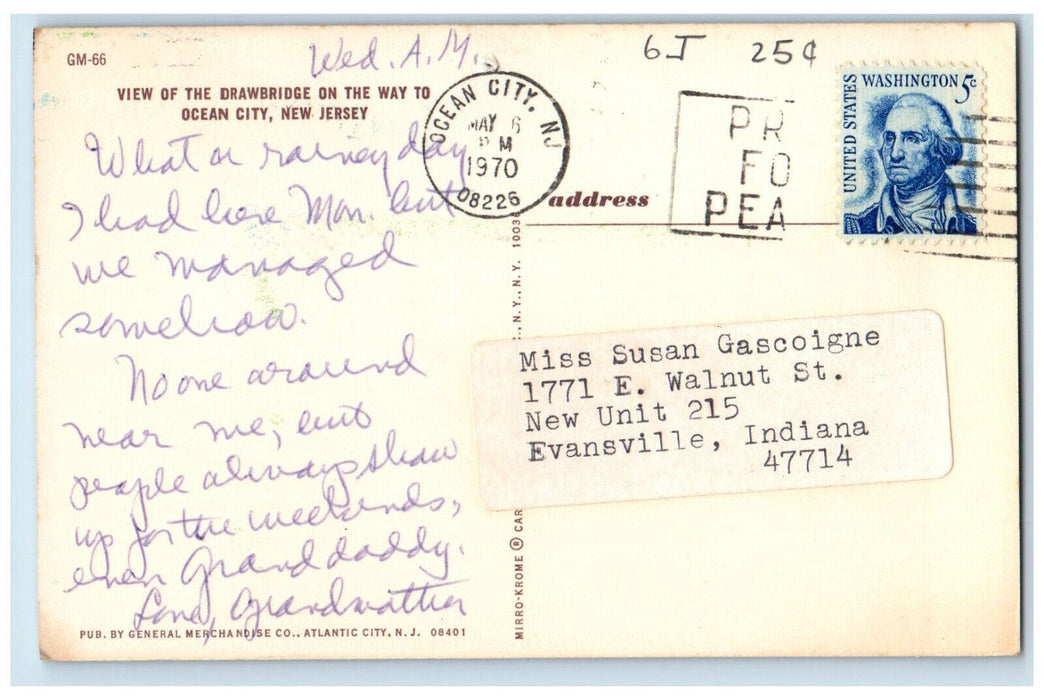 GM-66
Wed. A.M.
6J 25¢
VIEW OF THE DRAWBRIDGE ON THE WAY TO
OCEAN CITY, NEW JERSEY
What a rainey day
I had here Mon. but
we managed
somehow.
No one around
near me, but
people always show
up for the weekends,
even Granddaddy.
Love, Grandmother
PUB. BY GENERAL MERCHANDISE CO., ATLANTIC CITY, N. J. 08401
OCEAN CITY, NJ
MAY 6
PM
1970
08226
PR
FO
PEA
UNITED STATES WASHINGTON 5c
address
MIRRO-KROME ® CAR
., N.Y., N.Y. 1003
Miss Susan Gascoigne
1771 E. Walnut St.
New Unit 215
Evansville, Indiana
47714